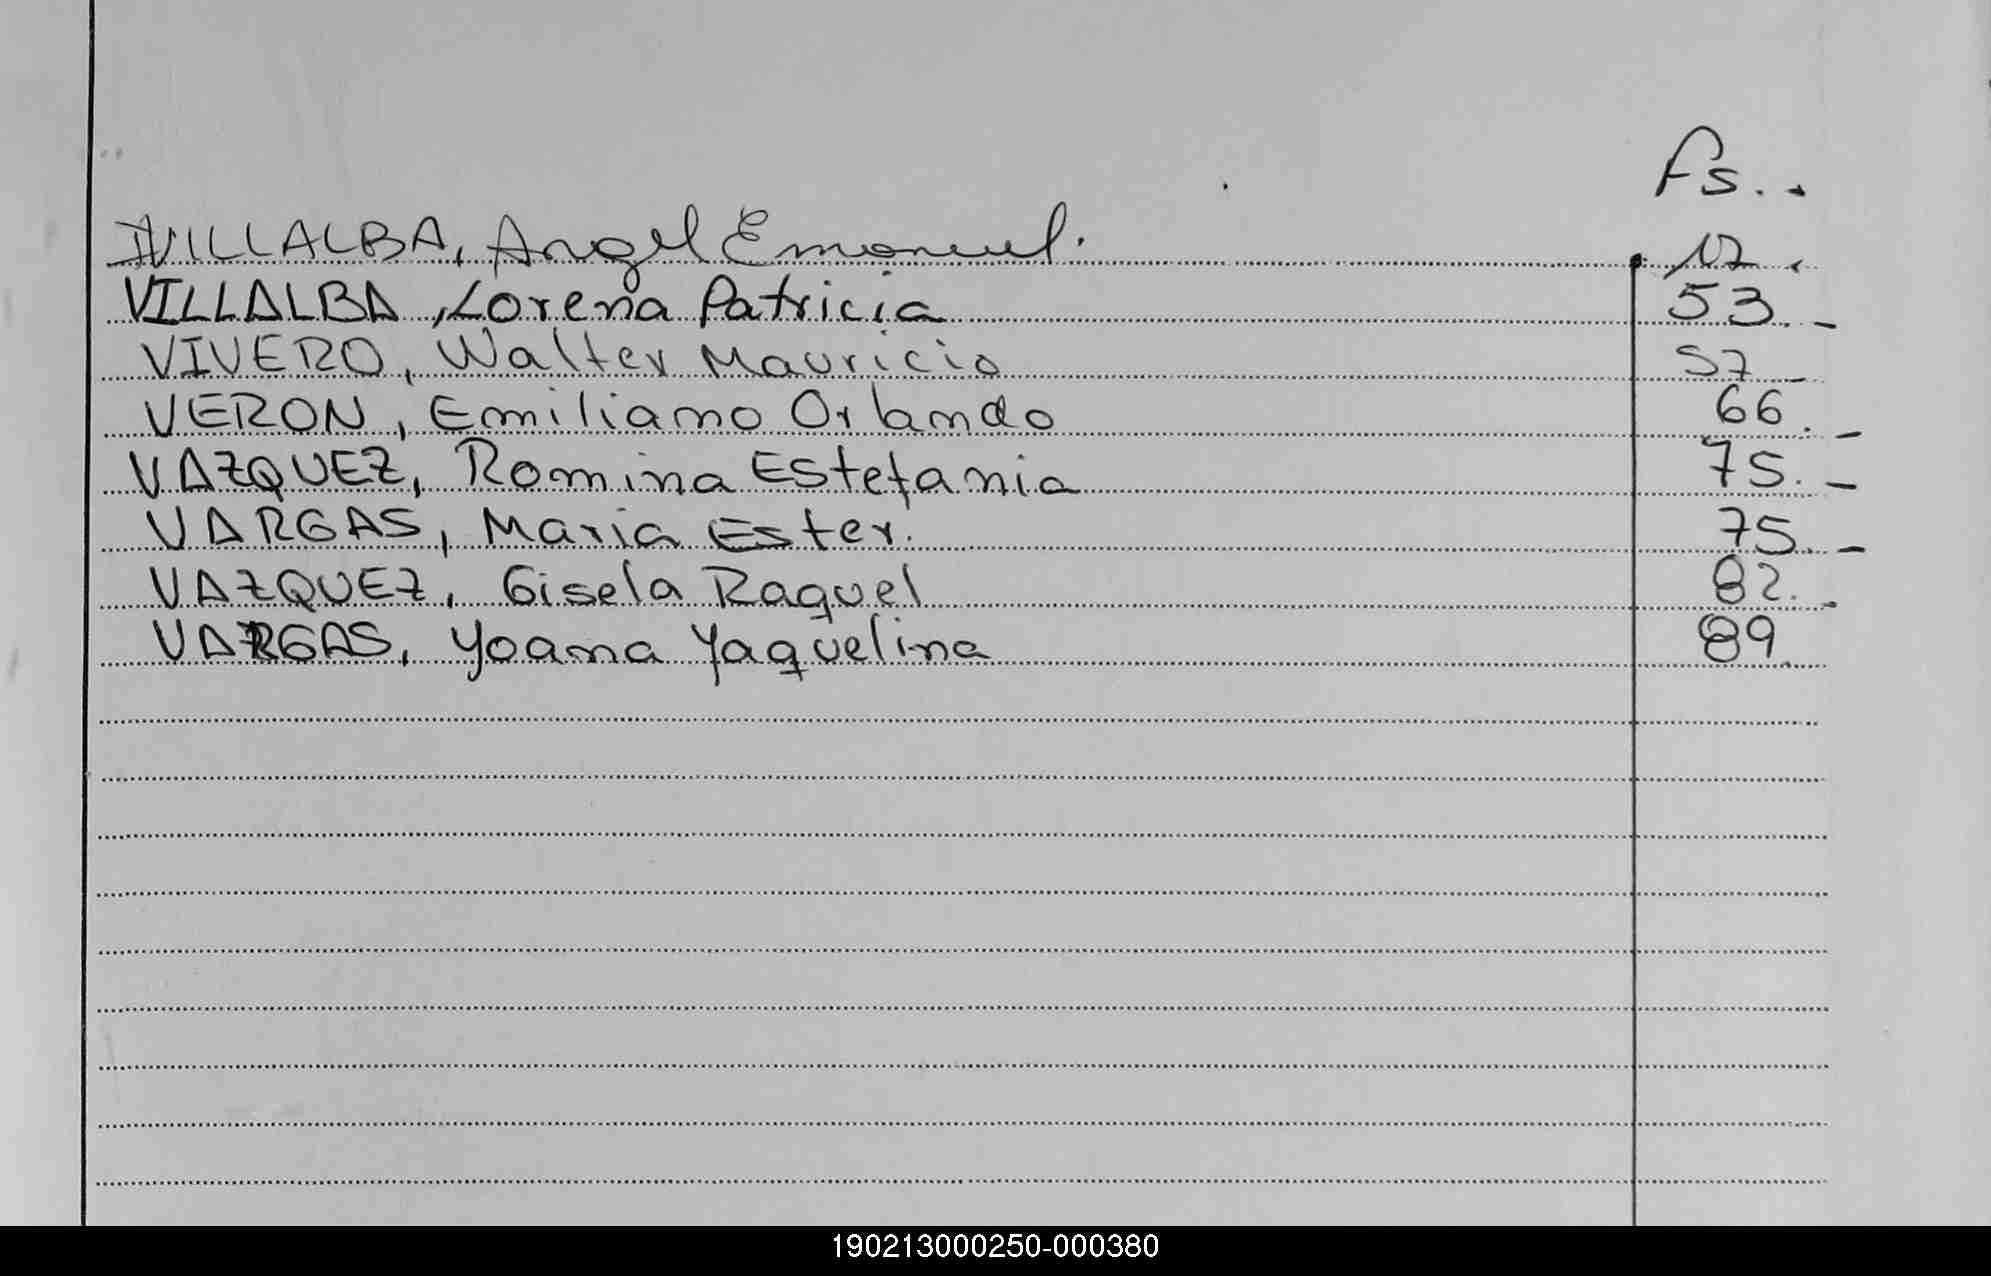 Fs..
VILLALBA, Angel Emanuel.
VILLALBA, Lorena Patricia 53.-
VIVERO, Walter Mauricio 57 -
VERON, Emiliano Orlando 66.-
VAZQUEZ, Romina Estefania 75.-
VARGAS, Maria Ester. 75.-
VAZQUEZ, Gisela Raquel 82.-
VARGAS, Yoana Yaquelina 89
190213000250-000380